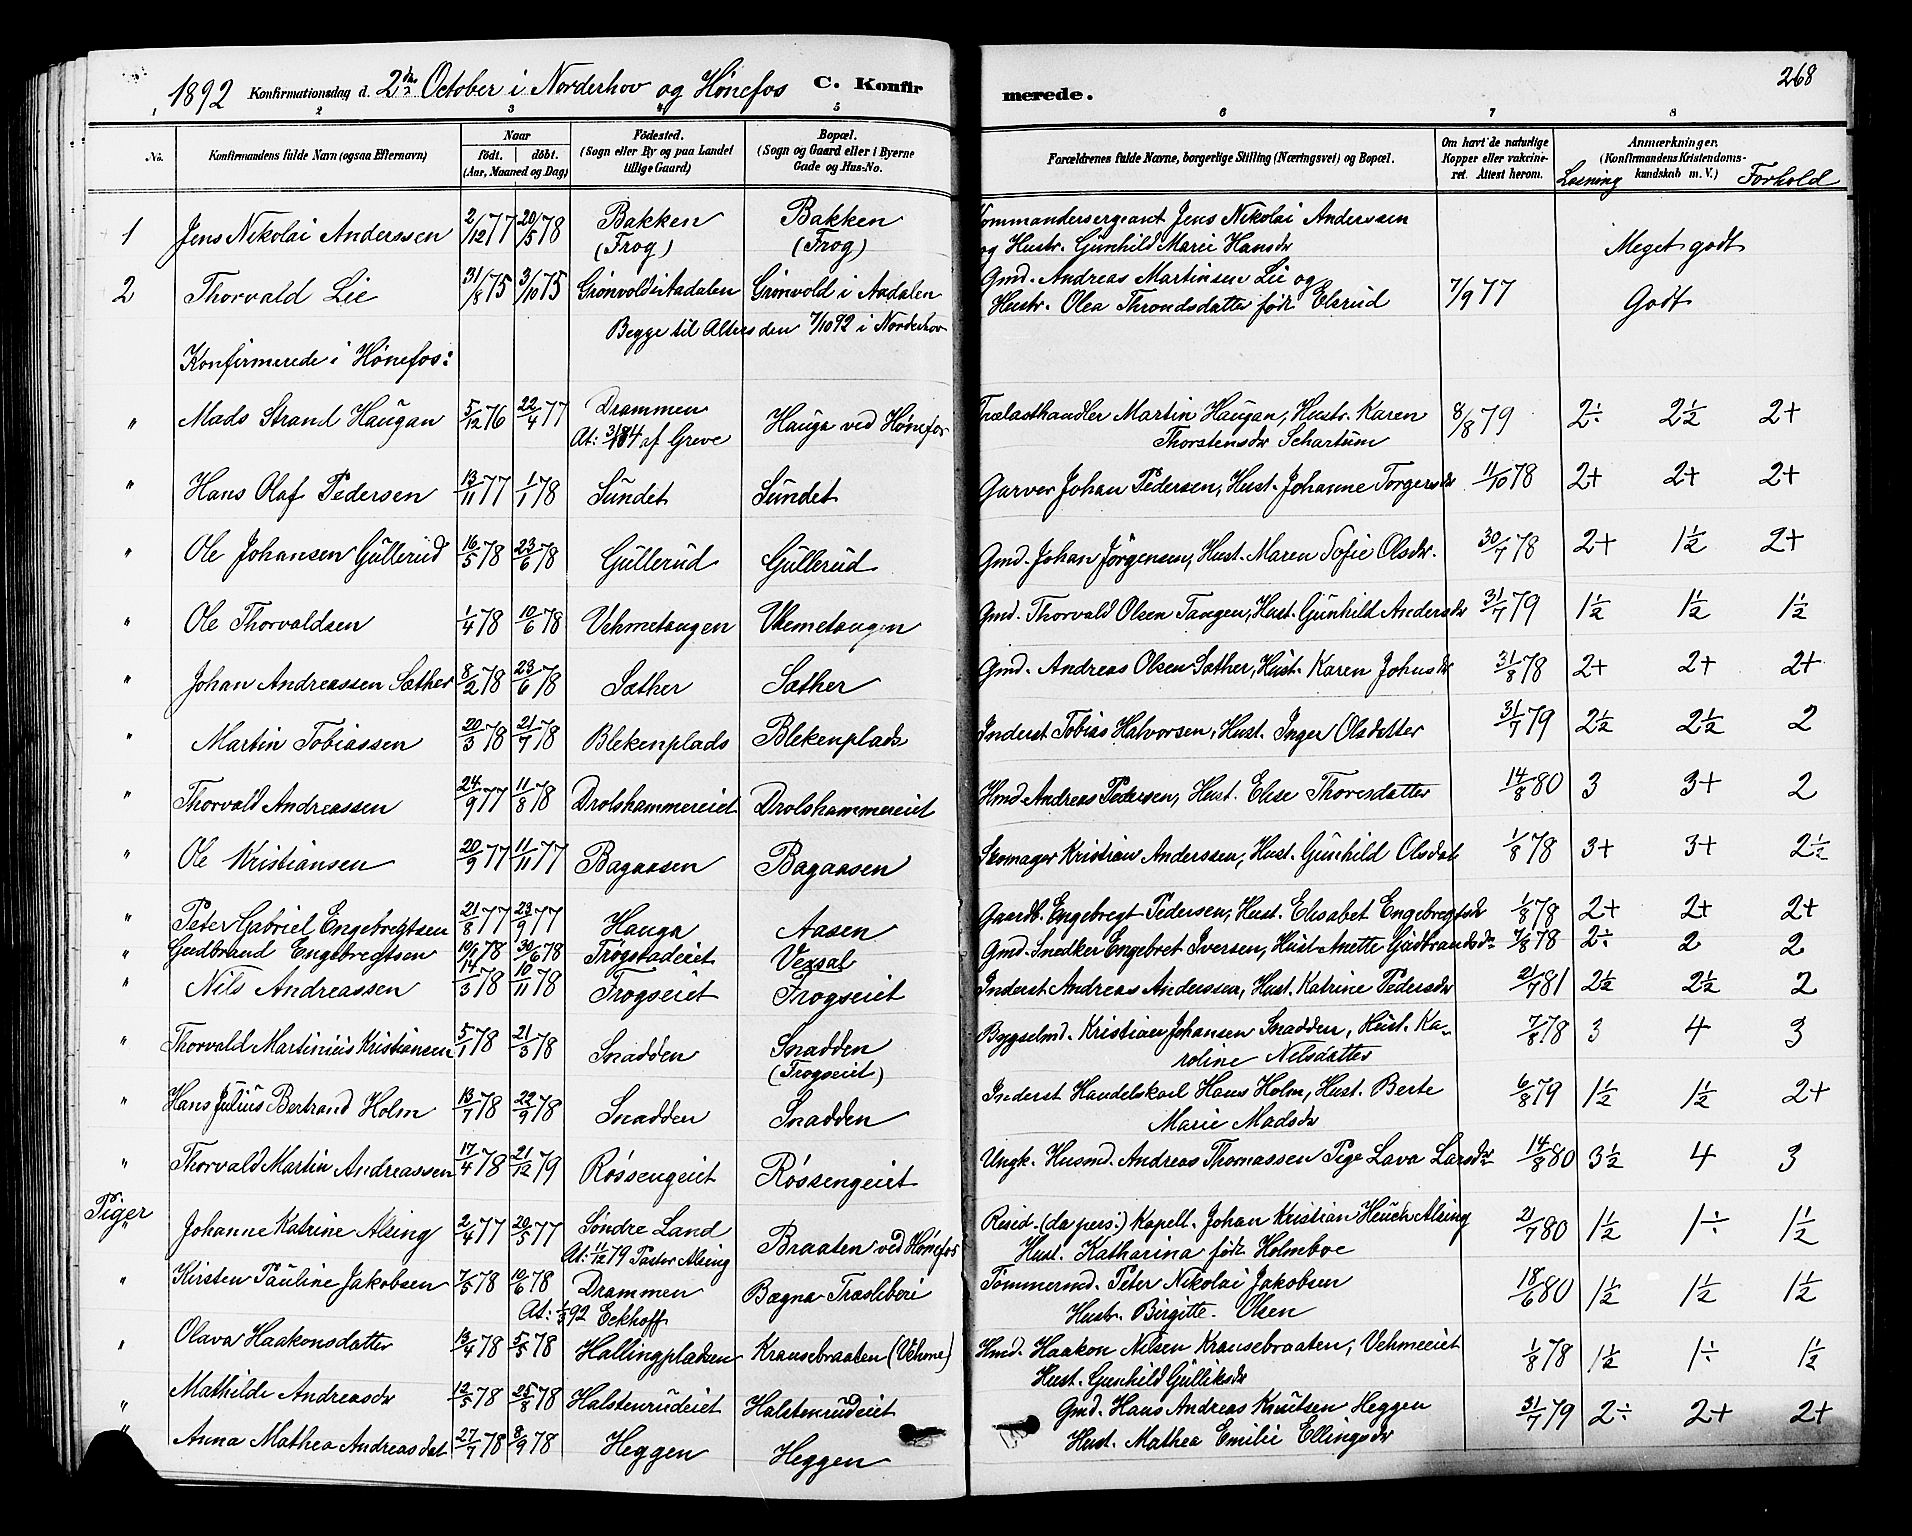 1892 Konfirmationsdag d. 2den October i Norderhov og Hønefos C. Konfir merede. 268
2 3 4 5 6 7 8
No. Konfirmandens fulde Navn (ogsaa Efternavn) Naar født. døbt. (Aar, Maaned og Dag) Fødested. (Sogn eller By og paa Landet tillige Gaard) Bopæl. (Sogn og Gaard eller i Byerne Gade og Hus-No. Forældrenes fulde Navne, borgerlige Stilling (Næringsvei) og Bopæl. Om havt de naturlige Kopper eller vakcineret. Attest herom. Anmærkninger. (Konfirmandens Kristendomskundskab m. V.) Læsning Forhold
1 Jens Nikolai Anderssen 2/12 77 20/5 78 Bakken (Frog) Bakken (Frog) Kommandersergeant Jens Nikolai Anderssen
og Hustr. Gunhild Marie Hansdr Meget godt
2 Thorvald Lie 31/8 75 3/10 75 Grønvold i Aadalen Grønvold i Aadalen Gmd. Andreas Martinsen Lie og
Hustr. Olea Throndsdatter født Elsrud 7/9 77 Godt
Begge til Alters den 7/10 92 i Norderhov
Konfirmerede i Hønefos:
" Mads Strand Haugan 5/12 76 22/4 77 Drammen Hauga ved Hønefos Trælasthandler Martin Haugan, Hustr. Karen 8/8 79 2÷ 2½ 2+
At: af Greve Thorstensdr Schartum
" Hans Olaf Pedersen 13/11 77 1/1 78 Sundet Sundet Garver Johan Pedersen, Hust. Johanne Torgersdr 11/10 78 2+ 2+ 2+
" Ole Johansen Gullerud 16/5 78 23/6 78 Gullerud Gullerud Gmd. Johan Jørgensen, Hust. Maren Sofie Olsdr. 30/7 78 2+ 1½ 2+
" Ole Thorvaldsen 1/4 78 10/6 78 Vehmetangen Vhemetangen Gmd. Thorvald Olsen Tangen, Hust. Gunhild Andersdr 31/7 79 1½ 1½ 1½
" Johan Andreassen Sæther 8/2 78 23/6 78 Sæther Sæther Gmd. Andreas Olsen Sæther, Hust. Karen Johnsdr 31/8 78 2+ 2+ 2+
" Martin Tobiassen 20/3 78 21/7 78 Blekenplads Blekenplads Inderst Tobias Halvorsen, Hust. Inger Olsdatter 31/7 79 2½ 2½ 2
" Thorvald Andreassen 24/9 77 11/8 78 Drolshammereiet Drolshammereiet Hmd Andreas Pedersen, Hust. Elise Thoresdatter 14/8 80 3 3+ 2
" Ole Kristiansen 20/9 77 11/11 77 Bagaasen Bagaasen Skomager Kristian Anderssen, Hust. Gunhild Olsdat 1/8 78 3+ 3+ 2½
" Peter Gabriel Engebregtsen 21/8 77 23/9 77 Hauga Aasen Gaardb. Engebregt Pedersen, Hust. Elisabet Engebregtsdr 1/8 78 2+ 2+ 2+
" Gudbrand Engebregtsen 10/1 78 30/6 78 Trøgstadeiet Vexsal Gmd. Snedker Engebret Iversen, Hust Anette Gudbrandsdr 7/8 78 2÷ 2 2
" Nils Andreassen 14/3 78 10/11 78 Frogseiet Frogseiet Inderst Andreas Anderssen, Hust. Katrine Pedersdr 21/7 81 2½ 2½ 2
" Thorvald Martinius Kristiansen 5/1 78 21/3 78 Snadden Snadden (Frogseiet) Bygselmd. Kristian Johansen Snadden, Hust. Ka-
roline Nilsdatter 7/8 78 3 4 3
" Hans Julius Bertrand Holm 13/7 78 22/9 78 Snadden Snadden Inderst Handelskarl Hans Holm, Hust. Berte
Marie Madsdr 6/8 79 1½ 1½ 2+
" Thorvald Martin Andreassen 17/4 78 21/12 79 Røssengeiet Røssengeiet Ungk. Husmd. Andreas Thomassen Pige Lava Larsdr 14/8 80 3½ 4 3
Piger
" Johanne Katrine Alsing 2/4 77 20/5 77 Søndre Land Braaten ved Hønefos Resid. (da pers.) Kapell. Johan Kristian Heuch Alsing 21/7 80 1½ 1÷ 1½
At: 11/12 79 Pastor Alsing Hust. Katharina født Holmboe
" Kirsten Pauline Jakobsen 7/5 78 10/6 78 Drammen Bægna Træsliberi Tømmermd. Peter Nikolai Jakobsen 18/6 80 1½ 1½ 1½
At: 92 Eckhoff Hustr. Birgitte Olsen
" Olava Haakonsdatter 13/4 78 5/5 78 Hallingpladsen Krausebraaten (Vehme) Hmd. Haakon Nilsen Krausebraaten, Vehmeeiet
Hust. Gunhild Gulliksdr 1/8 78 1½ 1÷ 1½
" Mathilde Andreasdr 12/5 78 25/8 78 Halstenrudeiet Halstenrudeiet Gmd. Hans Andreas Knutsen Heggen 31/7 79 2÷ 2+ 2+
" Anna Mathea Andreasdat 27/7 78 8/9 78 Heggen Heggen Hust. Mathea Emilie Ellingsdr